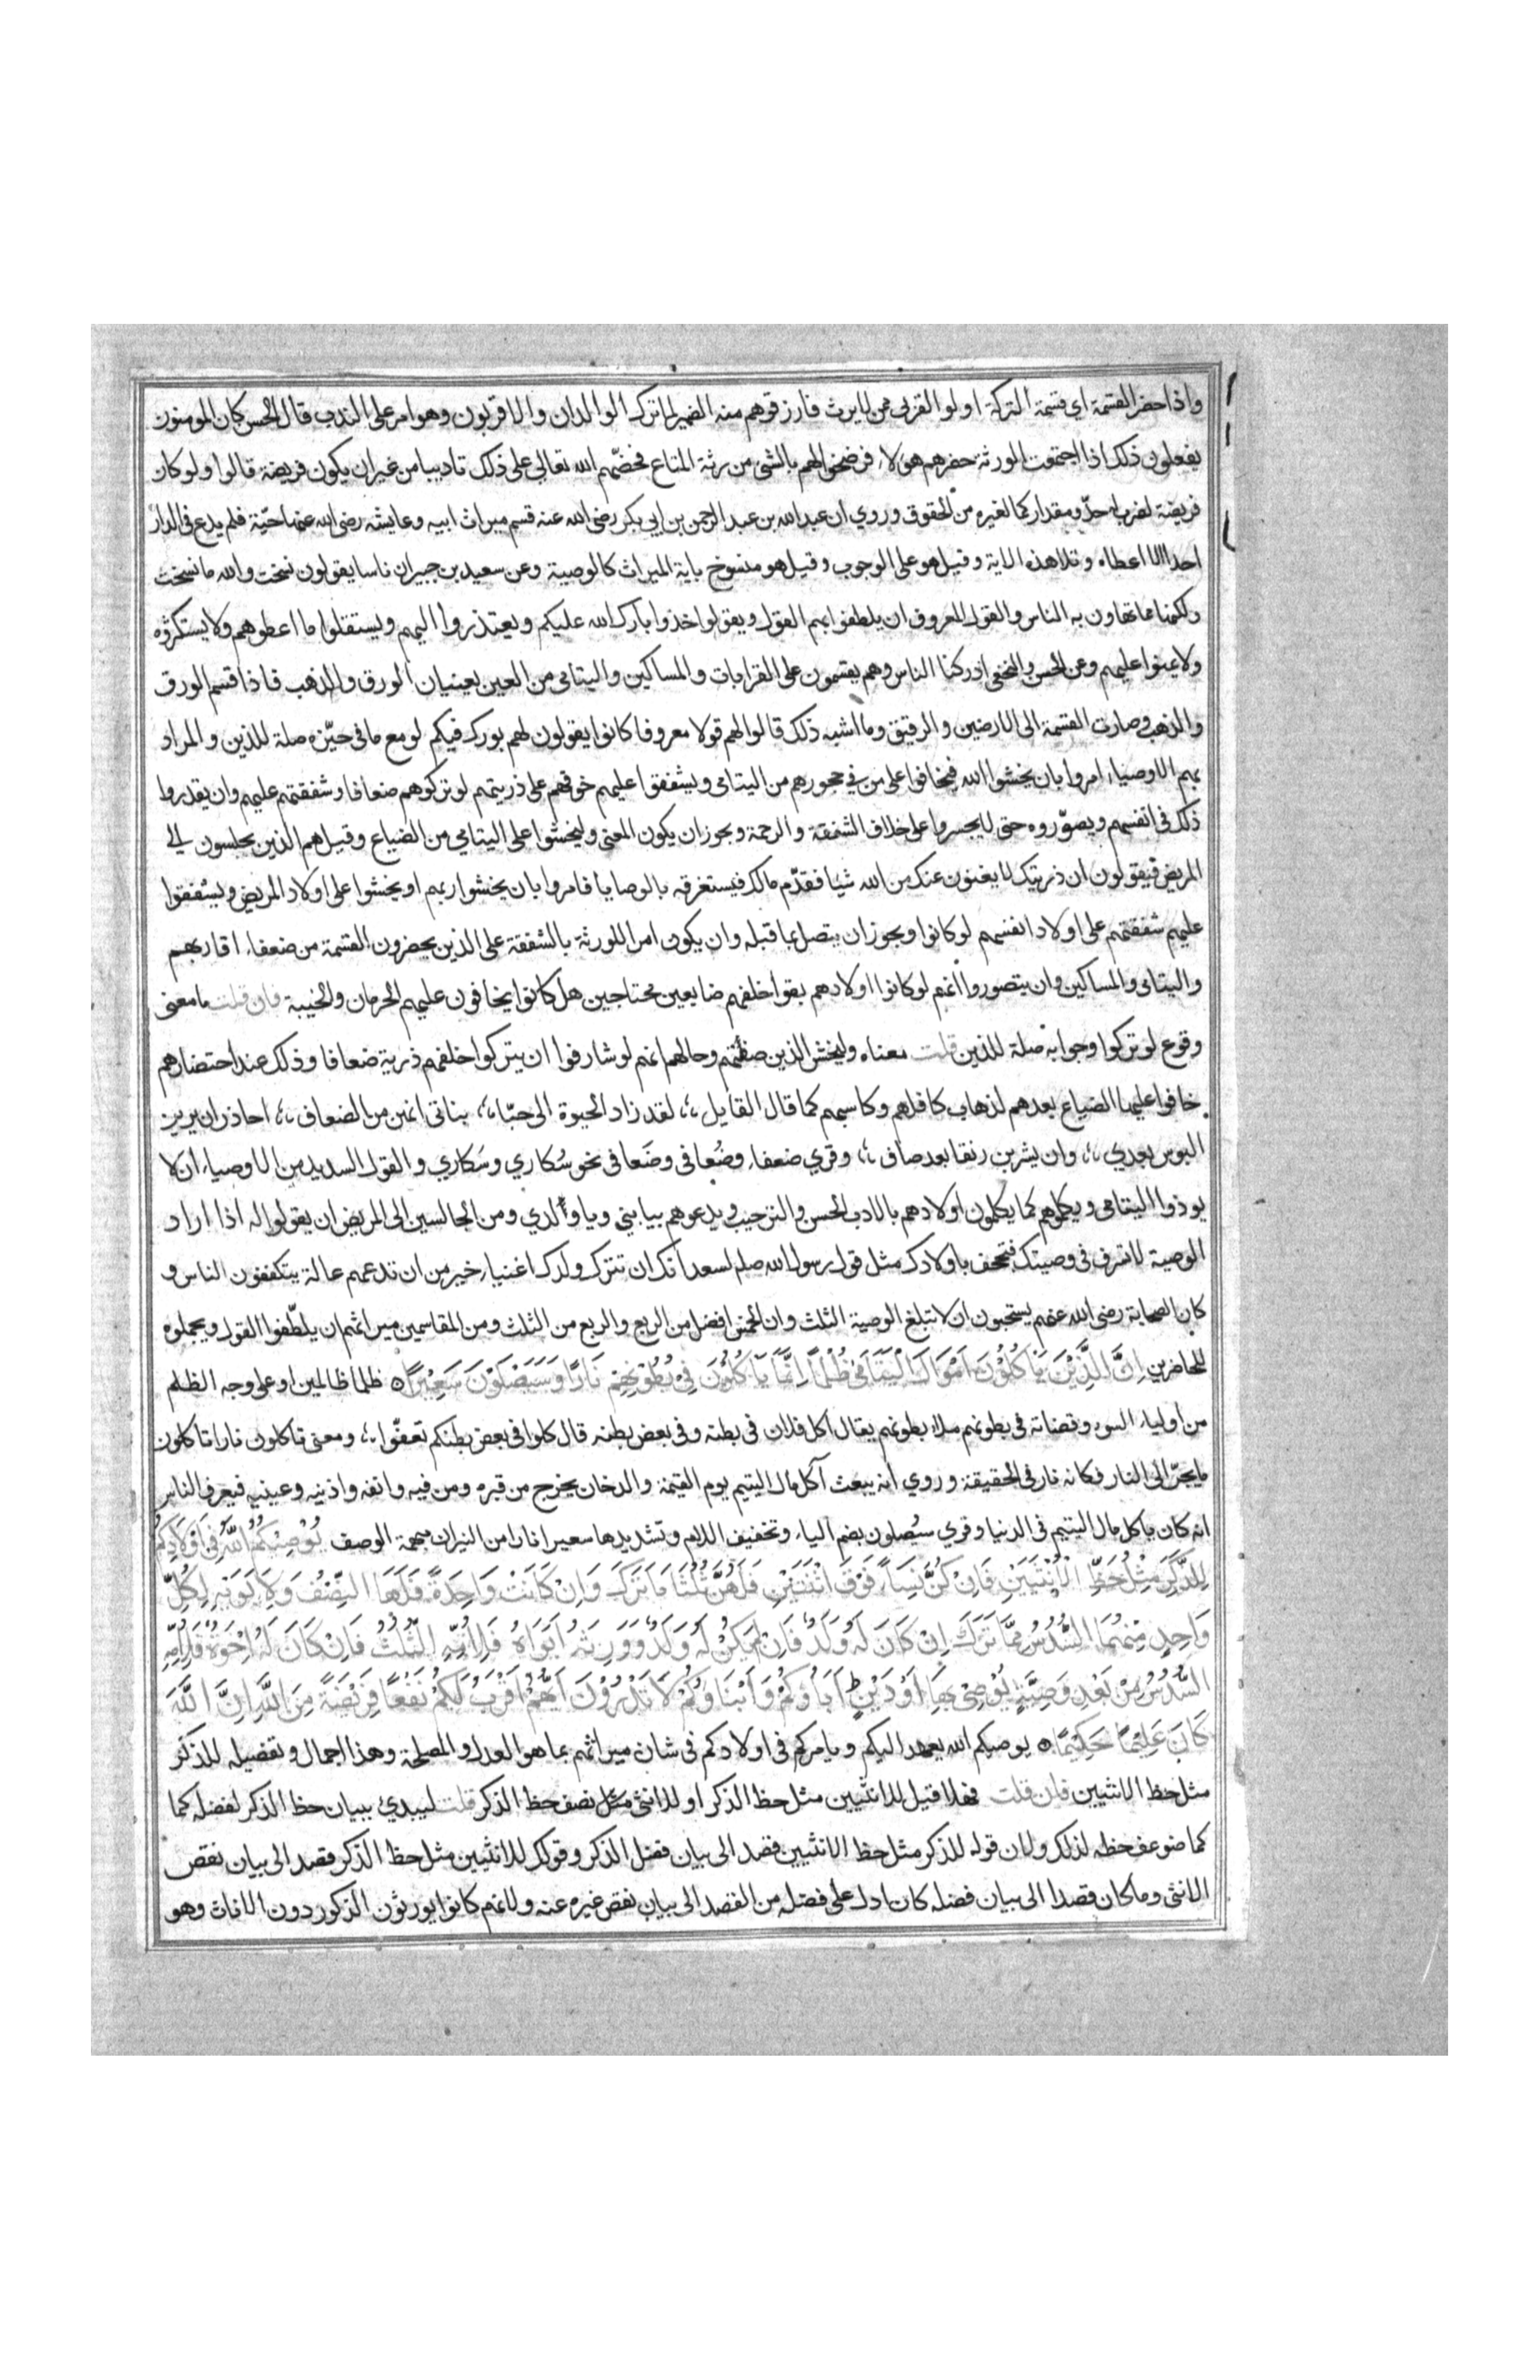 واذا حضر القسمة اي قسمة التركة اولو القربى ممن لا يرث فارزقوهم منه الضمير لما ترك الوالدان والاقربون وهو امر على الندب قال الحسن كان المومنون
يفعلون ذلك اذا اجتمعت الورثة حضرهم هؤلاء فرضخوا لهم بالشئ من رثة المتاع فحضّهم الله تعالى على ذلك تاديبا من غير ان يكون فريضة قالوا ولو كان
فريضة لضرب له حدّ ومقدار كما لغيره من الحقوق وروي ان عبد الله بن عبد الرحمن بن ابي بكر رضى الله عنه قسم ميراث ابيه وعايشه رضى الله عنها حيّة فلم يدع في الدار
احدا الا اعطاه وتلا هذه الاية وقيل هو على الوجوب وقيل هو منسوخ باية الميراث كالوصية وعن سعيد بن جبير ان ناسا يقولون نسخت والله ما نسخت
ولكنها مما تهاون به الناس والقول المعروف ان يلطفوا بهم القول ويقولوا خذوا بارك الله عليكم ويعتذروا اليهم ويستقلوا ما اعطوهم ولا يستكثروه
ولا يمنوا عليهم وعن الحسن والنخعي ادركنا الناس وهم يقسمون على القرابات والمساكين واليتامى من العين يعنيان الورق والذهب فاذا قسم الورق
والذهب وصارت القسمة الى الارضين والرقيق وما اشبه ذلك قالوا لهم قولا معروفا كانوا يقولون لهم بورك فيكم لو مع ما في حيّزه صلة للذين والمراد
بهم الاوصياء امروا بان يخشوا الله فيخافوا على من في حجورهم من اليتامى ويشفقوا عليهم خوفهم على ذريتهم لو تركوهم ضعافا وشفقتهم عليهم وان يقدروا
ذلك في انفسهم ويصوّروه حتى لا يجسروا على خلاف الشفقة والرحمة ويجوز ان يكون المعنى وليخشوا على اليتامى من الضياع وقيل هم الذين يجلسون الى
المريض فيقولون ان ذريتك لا يغنون عنك من الله شيا فقدّم مالك فيستغرقه بالوصايا فامروا بان يخشوا ربهم او يخشوا على اولاد المريض ويشفقوا
عليهم شفقتهم على اولاد انفسهم لو كانوا ويجوز ان يتصل بما قبله وان يكون امرا للورثة بالشفقة على الذين يحضرون القسمة من ضعفاء اقاربهم
واليتامى والمساكين وان يتصوروا انهم لو كانوا اولادهم بقوا خلفهم ضايعين محتاجين هل كانوا يخافون عليهم الحرمان والخيبة فان قلت ما معنى
وقوع لو تركوا وجوابه صلة للذين قلت معناه وليخش الذين صفتهم وحالهم انهم لو شارفوا ان يتركوا خلفهم ذرية ضعافا وذلك عند احتضارهم
خافوا عليهم الضياع بعدهم لذهاب كافلهم وكاسبهم كما قال القايل لقد زاد الحيوة الى حبّا بناتي انهن من الضعاف احاذر ان يرين
البوس بعدي وان يشربن رنقا بعد صاف وقري ضعفاء وضُعافى وضَعافى نحو سُكارى وسَكارى والقول السديد من الاوصياء ان لا
يوذوا اليتامى ويكلموهم كما يكلمون اولادهم بالادب الحسن والترحيب ويدعوهم بيا بني ويا ولدي ومن الجالسين الى المريض ان يقولوا له اذا اراد
الوصية لا تسرف في وصيتك فتجحف باولادك مثل قول رسول الله صلم لسعد انك ان تترك ولدك اغنياء خير من ان تدعهم عالة يتكففون الناس و
كان الصحابة رضى الله عنهم يستحبون ان لا تبلغ الوصية الثلث وان الخمس افضل من الربع والربع من الثلث ومن المقاسمين ميراثهم ان يلطّفوا القول ويجملوه
للحاضرين اِنَّ الَّذِيْنَ يَاْكُلُوْنَ اَمْوَالَ الْيَتَامٰى ظُلْمًا اِنَّمَا يَاْكُلُوْنَ فِيْ بُطُوْنِهِمْ نَارًا وَسَيَصْلَوْنَ سَعِيْرًا ه ظلما ظالمين او على وجه الظلم
من اولياء السوء وقضاته في بطونهم ملاء بطونهم يقال اكل فلان في بطنه وفي بعض بطنه قال كلوا في بعض بطنكم تعفّوا ومعنى تاكلون نارا تاكلون
ما يجرّ الى النار فكانه نار في الحقيقة وروي انه يبعث آكل مال اليتيم يوم القيمة والدخان يخرج من قبره ومن فيه وانفه واذنيه وعينيه فيعرف الناس
انه كان ياكل مال اليتيم في الدنيا وقري سيُصلون بضم الياء وتخفيف اللام وتشديدها سعيرا نارا من النيران مبهمة الوصف يُوْصِيْكُمُ اللّٰهُ فِيْ اَوْلَادِكُمْ
لِلذَّكَرِ مِثْلُ حَظِّ الْاُنْثَيَيْنِ فَاِنْ كُنَّ نِسَاءً فَوْقَ اثْنَتَيْنِ فَلَهُنَّ ثُلُثَا مَا تَرَكَ وَاِنْ كَانَتْ وَاحِدَةً فَلَهَا النِّصْفُ وَلِاَبَوَيْهِ لِكُلِّ
وَاحِدٍ مِنْهُمَا السُّدُسُ مِمَّا تَرَكَ اِنْ كَانَ لَهُ وَلَدٌ فَاِنْ لَمْ يَكُنْ لَهُ وَلَدٌ وَوَرِثَهُ اَبَوَاهُ فَلِاُمِّهِ الثُّلُثُ فَاِنْ كَانَ لَهُ اِخْوَةٌ فَلِاُمِّهِ
السُّدُسُ مِنْ بَعْدِ وَصِيَّةٍ يُوْصِيْ بِهَا اَوْ دَيْنٍ ط اٰبَاؤُكُمْ وَاَبْنَاؤُكُمْ لَا تَدْرُوْنَ اَيُّهُمْ اَقْرَبُ لَكُمْ نَفْعًا فَرِيْضَةً مِنَ اللّٰهِ اِنَّ اللّٰهَ
كَانَ عَلِيْمًا حَكِيْمًا ه يوصيكم الله يعهد اليكم ويامركم في اولادكم في شان ميراثهم بما هو العدل والمصلحة وهذا اجمال وتفصيله للذكر
مثل حظ الانثيين فان قلت فهلا قيل للانثيين مثل حظ الذكر او للانثى نصف حظ الذكر قلت ليبدئ ببيان حظ الذكر لفضله كما
كما ضوعف حظه لذلك ولان قوله للذكر مثل حظ الانثيين قصد الى بيان فضل الذكر وقولك للانثيين مثل حظ الذكر قصد الى بيان نقص
الانثى وما كان قصدا الى بيان فضله كان ادل على فضله من القصد الى بيان نقص غيره عنه ولانهم كانوا يورثون الذكور دون الاناث وهو